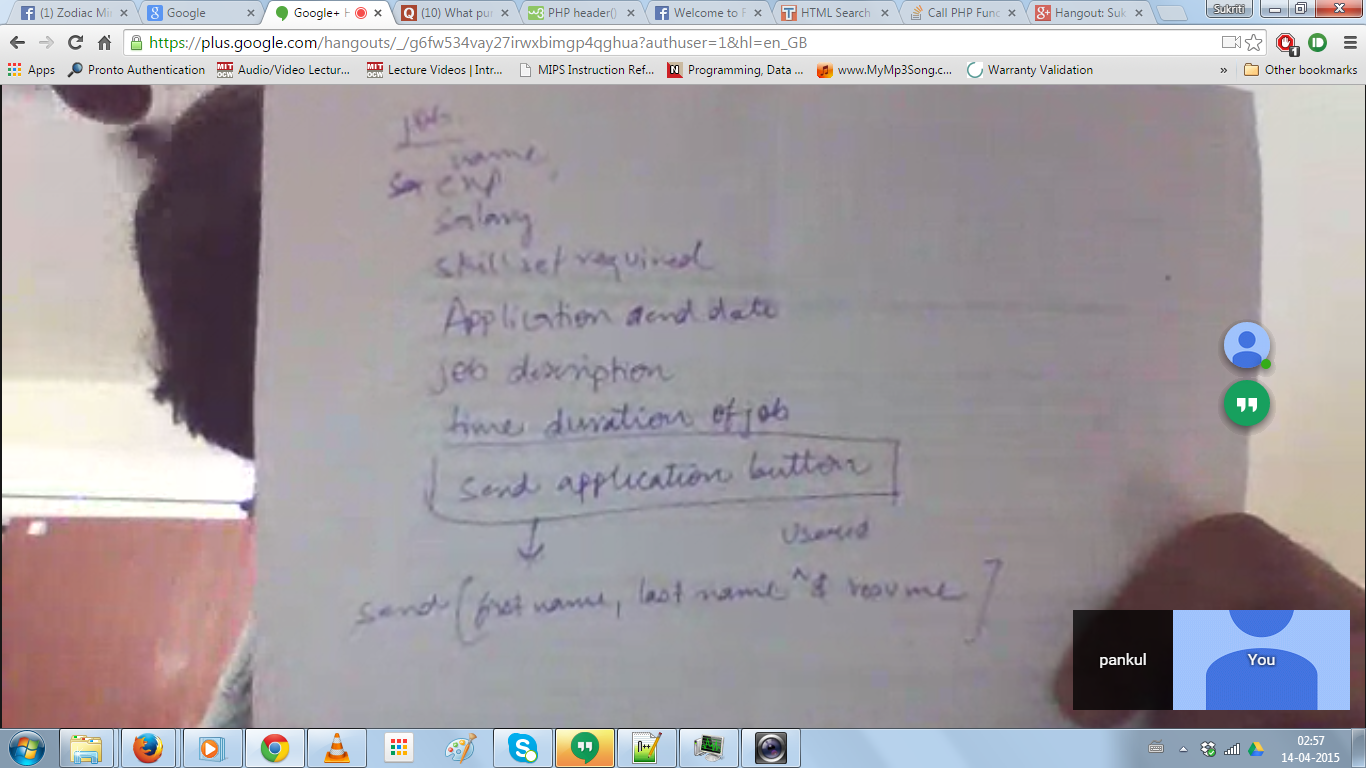 (1) Zodiac Mi
Google
Google+ H
(10) What pu
PHP header()
Welcome to F
HTML Search
Call PHP Func
Hangout: Suk
Sukriti
https://plus.google.com/hangouts/_/g6fw534vay27irwxbimgp4qghua?authuser=1&hl=en_GB
1
Apps
Pronto Authentication
MIT OCW Audio/Video Lectur...
MIT OCW Lecture Videos | Intr...
MIPS Instruction Ref...
N Programming, Data ...
www.MyMp3Song.c...
Warranty Validation
»
Other bookmarks
job
name
exp
salary
skill set required
Application end date
job description
time duration of job
send application button
userid
send (first name, last name ^ & resume)
pankul
You
02:57
14-04-2015